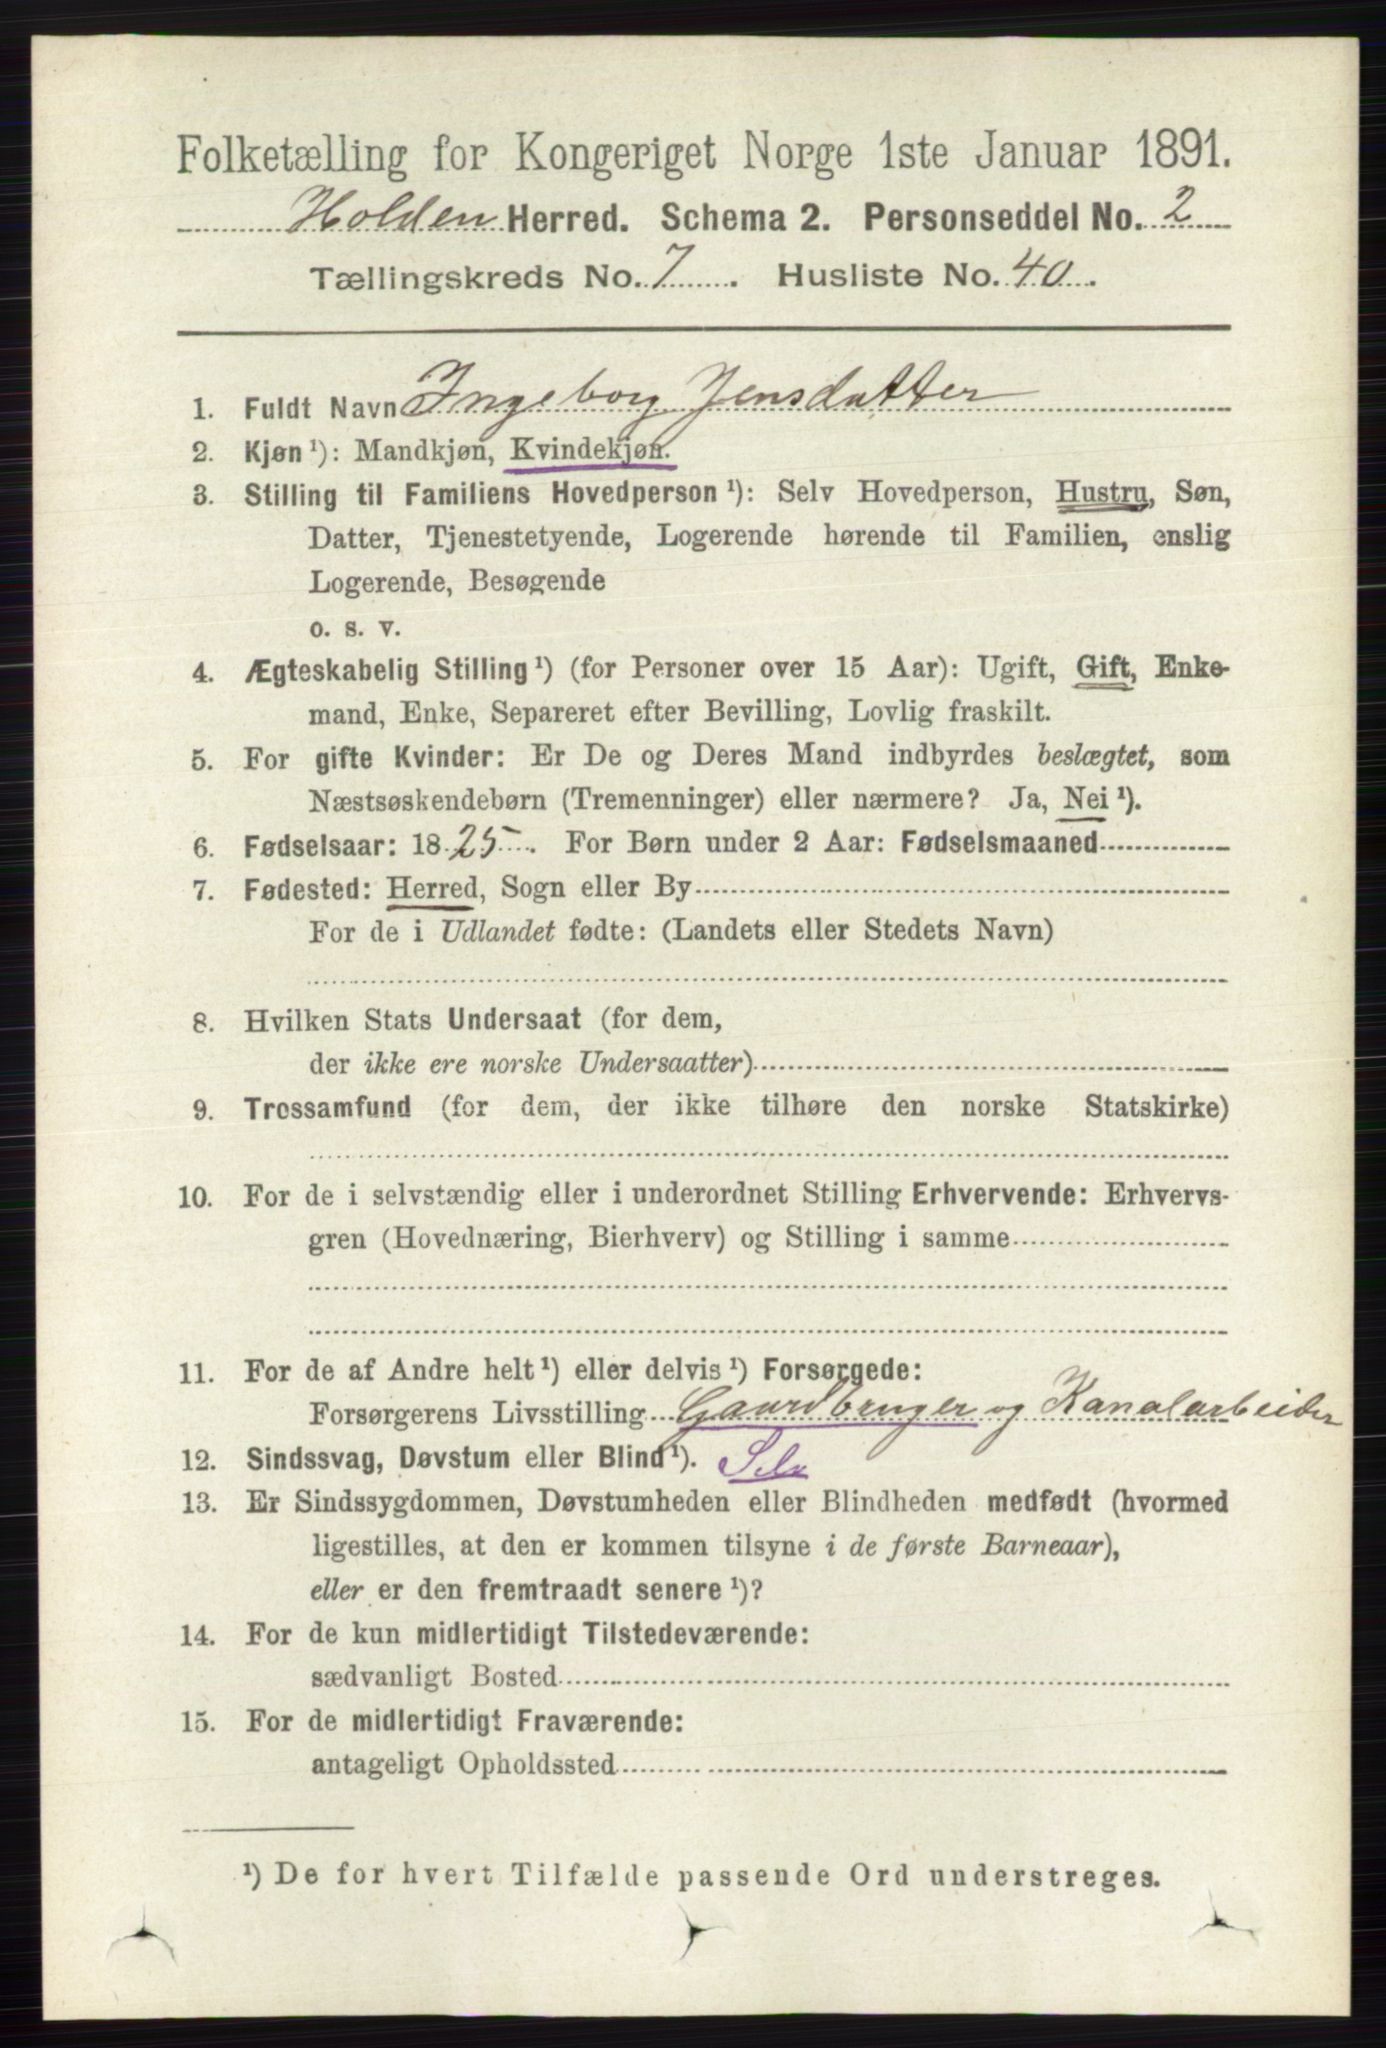 Folketælling for Kongeriget Norge 1ste Januar 1891.
Holden Herred. Schema 2. Personseddel No. 2
Tællingskreds No. 7. Husliste No. 40.
1. Fuldt Navn Ingeborg Jensdatter
2. Kjøn ¹): Mandkjøn, Kvindekjøn.
3. Stilling til Familiens Hovedperson ¹): Selv Hovedperson, Hustru, Søn,
Datter, Tjenestetyende, Logerende hørende til Familien, enslig
Logerende, Besøgende
o. s. v.
4. Ægteskabelig Stilling ¹) (for Personer over 15 Aar): Ugift, Gift, Enke-
mand, Enke, Separeret efter Bevilling, Lovlig fraskilt.
5. For gifte Kvinder: Er De og Deres Mand indbyrdes beslægtet, som
Næstsøskendebørn (Tremenninger) eller nærmere? Ja, Nei ¹).
6. Fødselsaar: 1825. For Børn under 2 Aar: Fødselsmaaned
7. Fødested: Herred, Sogn eller By
For de i Udlandet fødte: (Landets eller Stedets Navn)
8. Hvilken Stats Undersaat (for dem,
der ikke ere norske Undersaatter)
9. Trossamfund (for dem, der ikke tilhøre den norske Statskirke)
10. For de i selvstændig eller i underordnet Stilling Erhvervende: Erhvervs-
gren (Hovednæring, Bierhverv) og Stilling i samme
11. For de af Andre helt ¹) eller delvis ¹) Forsørgede:
Forsørgerens Livsstilling Gaardbruger og Kanalarbeider
12. Sindssvag, Døvstum eller Blind ¹). Selv
13. Er Sindssygdommen, Døvstumheden eller Blindheden medfødt (hvormed
ligestilles, at den er kommen tilsyne i de første Barneaar),
eller er den fremtraadt senere ¹)?
14. For de kun midlertidigt Tilstedeværende:
sædvanligt Bosted
15. For de midlertidigt Fraværende:
antageligt Opholdssted
¹) De for hvert Tilfælde passende Ord understreges.